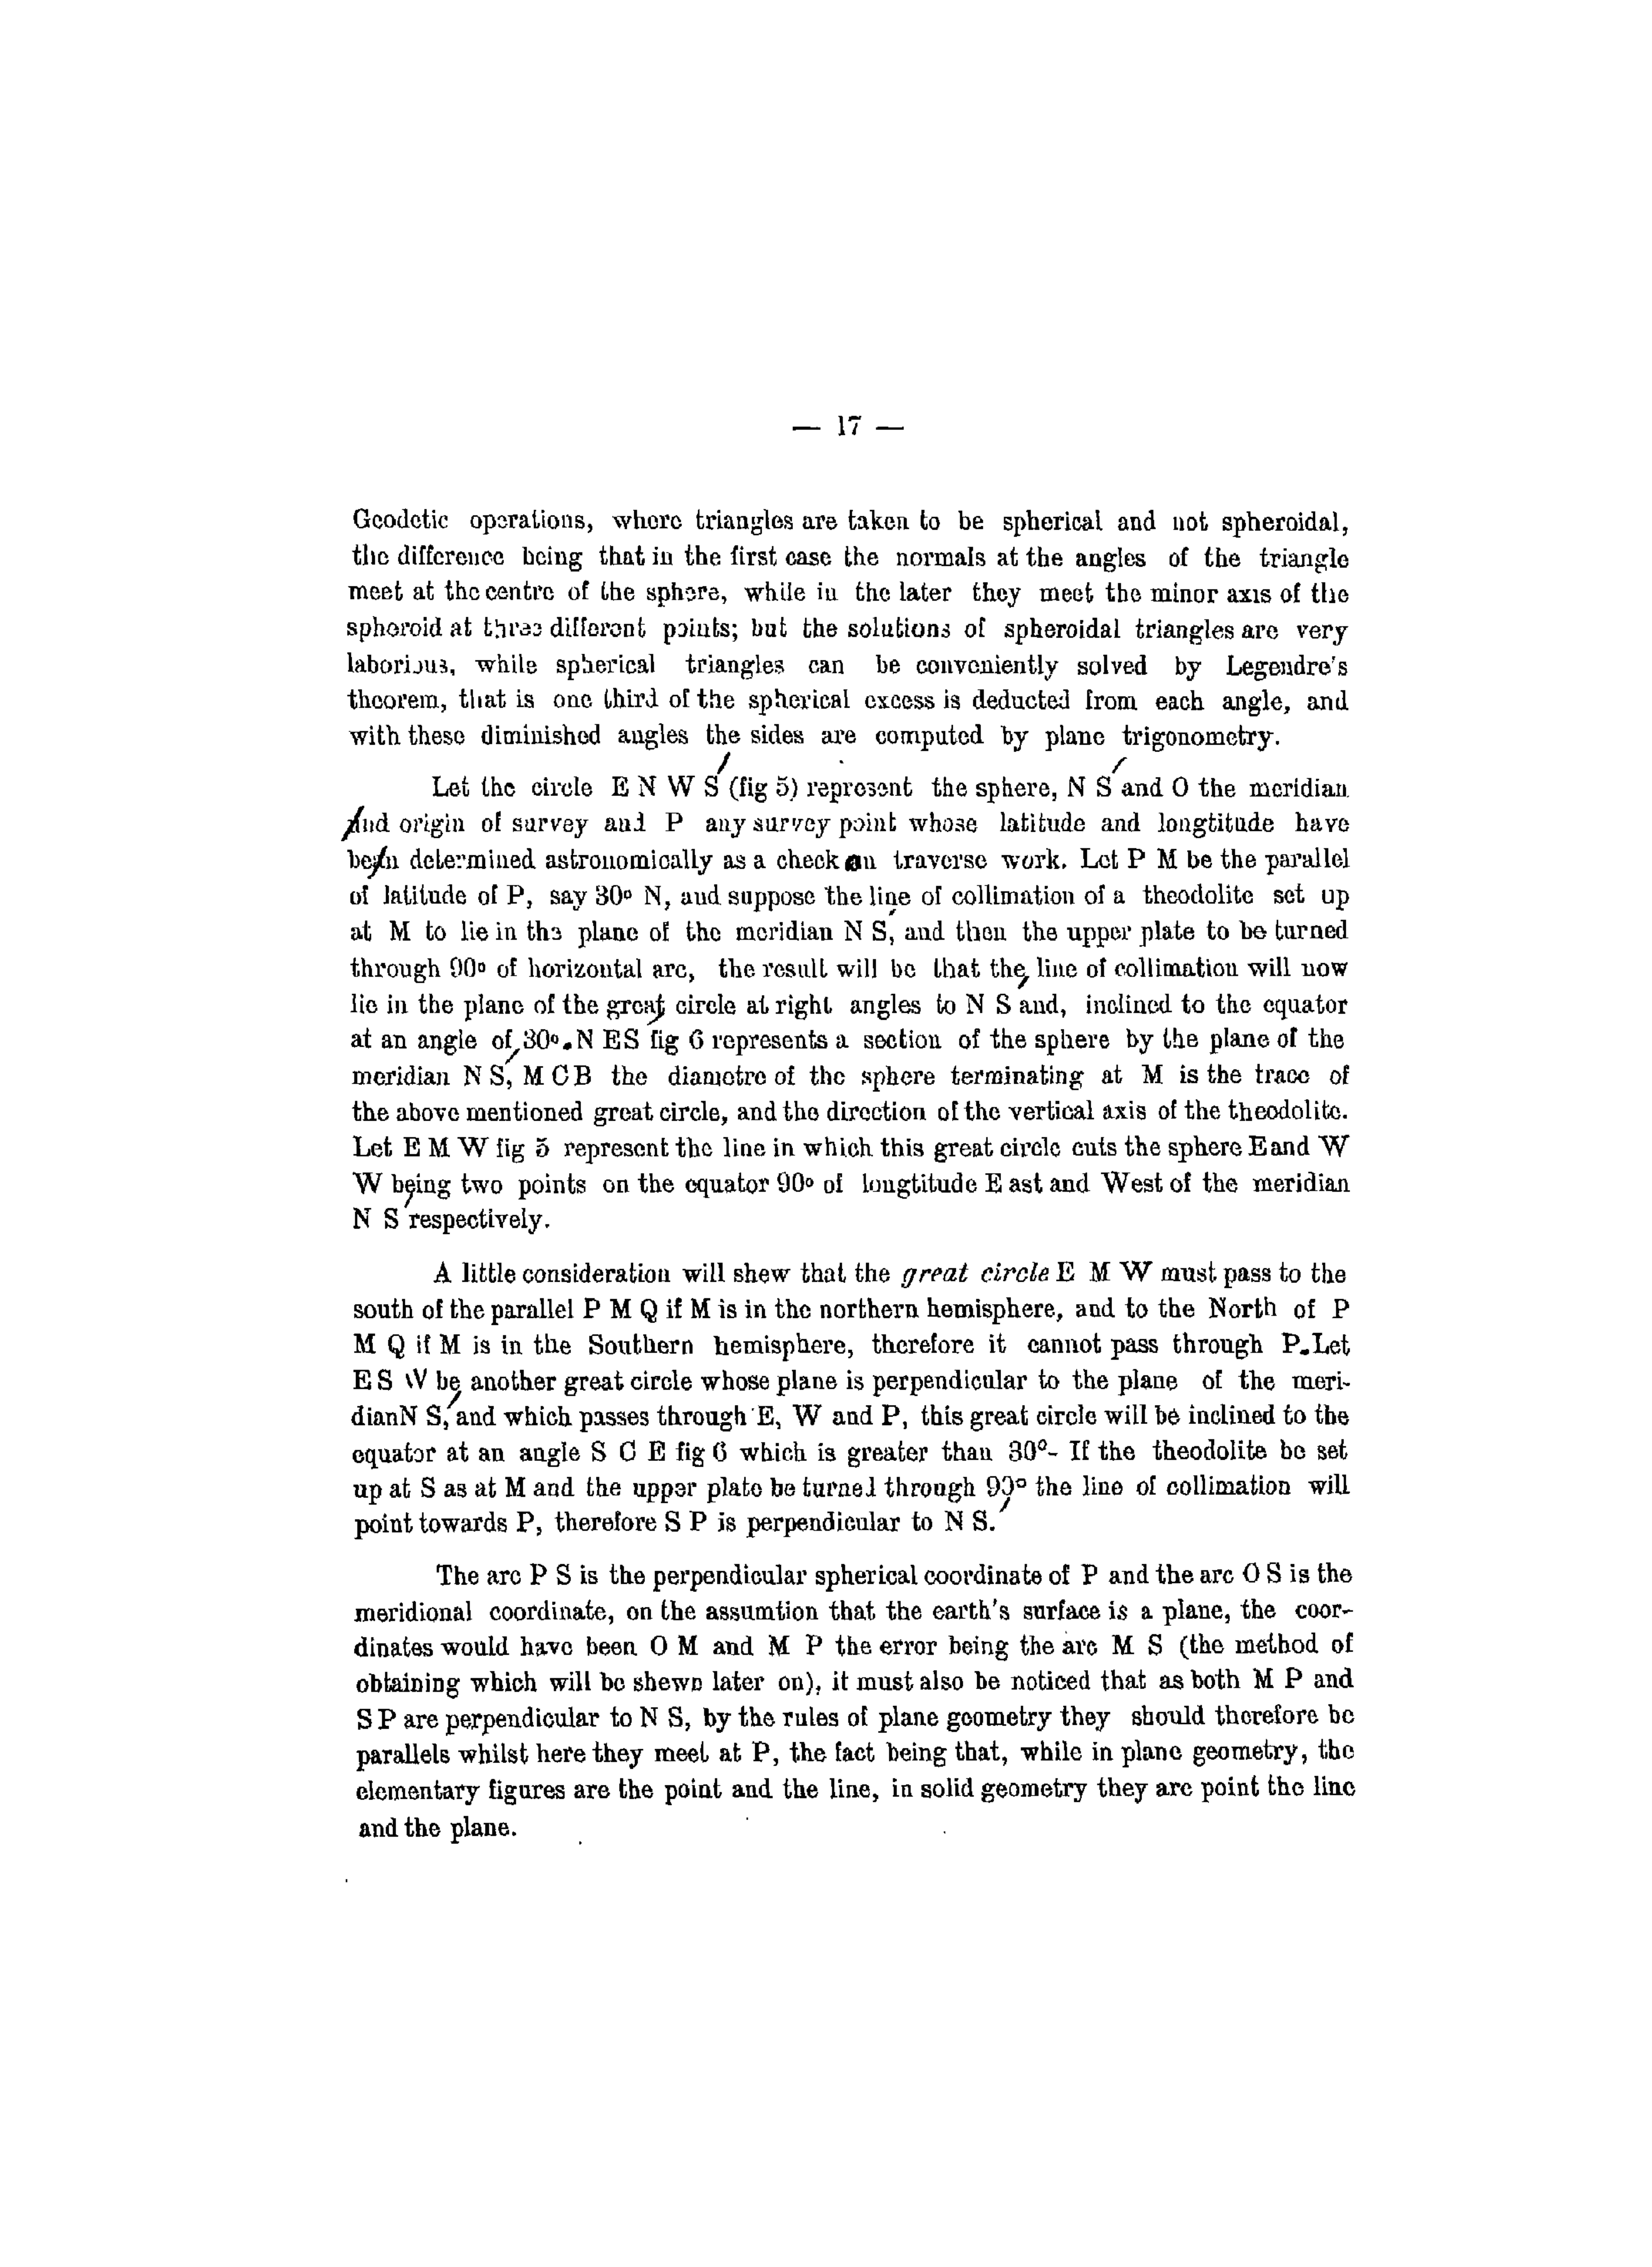 — 17 —
Geodetic operations, where triangles are taken to be spherical and not spheroidal,
the difference being that in the first case the normals at the angles of the triangle
meet at the centre of the sphere, while in the later they meet the minor axis of the
spheroid at three different points; but the solutions of spheroidal triangles are very
laborious, while spherical triangles can be conveniently solved by Legendre's
theorem, that is one third of the spherical excess is deducted from each angle, and
with these diminished angles the sides are computed by plane trigonometry.
Let the circle E N W S′ (fig 5) represent the sphere, N S′ and O the meridian
and origin of survey and P any survey point whose latitude and longtitude have
been determined astronomically as a check on traverse work. Let P M be the parallel
of latitude of P, say 30° N, and suppose the line of collimation of a theodolite set up
at M to lie in the plane of the meridian N S′, and then the upper plate to be turned
through 90° of horizontal arc, the result will be that the line of collimation will now
lie in the plane of the great circle at right angles to N S′ and, inclined to the equator
at an angle of 30°. N ES fig 6 represents a section of the sphere by the plane of the
meridian N S′, M C B the diametre of the sphere terminating at M is the trace of
the above mentioned great circle, and the direction of the vertical axis of the theodolite.
Let E M W fig 5 represent the line in which this great circle cuts the sphere E and W
W being two points on the equator 90° of longtitude E ast and West of the meridian
N S′ respectively.
A little consideration will shew that the great circle E M W must pass to the
south of the parallel P M Q if M is in the northern hemisphere, and to the North of P
M Q if M is in the Southern hemisphere, therefore it cannot pass through P. Let
E S W be another great circle whose plane is perpendicular to the plane of the meri-
dianN S′, and which passes through E, W and P, this great circle will be inclined to the
equator at an angle S C E fig 6 which is greater than 30°- If the theodolite be set
up at S as at M and the upper plate be turned through 90° the line of collimation will
point towards P, therefore S P is perpendicular to N S.′
The arc P S is the perpendicular spherical coordinate of P and the arc O S is the
meridional coordinate, on the assumtion that the earth's surface is a plane, the coor-
dinates would have been O M and M P the error being the arc M S (the method of
obtaining which will be shewn later on), it must also be noticed that as both M P and
S P are perpendicular to N S, by the rules of plane geometry they should therefore be
parallels whilst here they meet at P, the fact being that, while in plane geometry, the
elementary figures are the point and the line, in solid geometry they are point the line
and the plane.